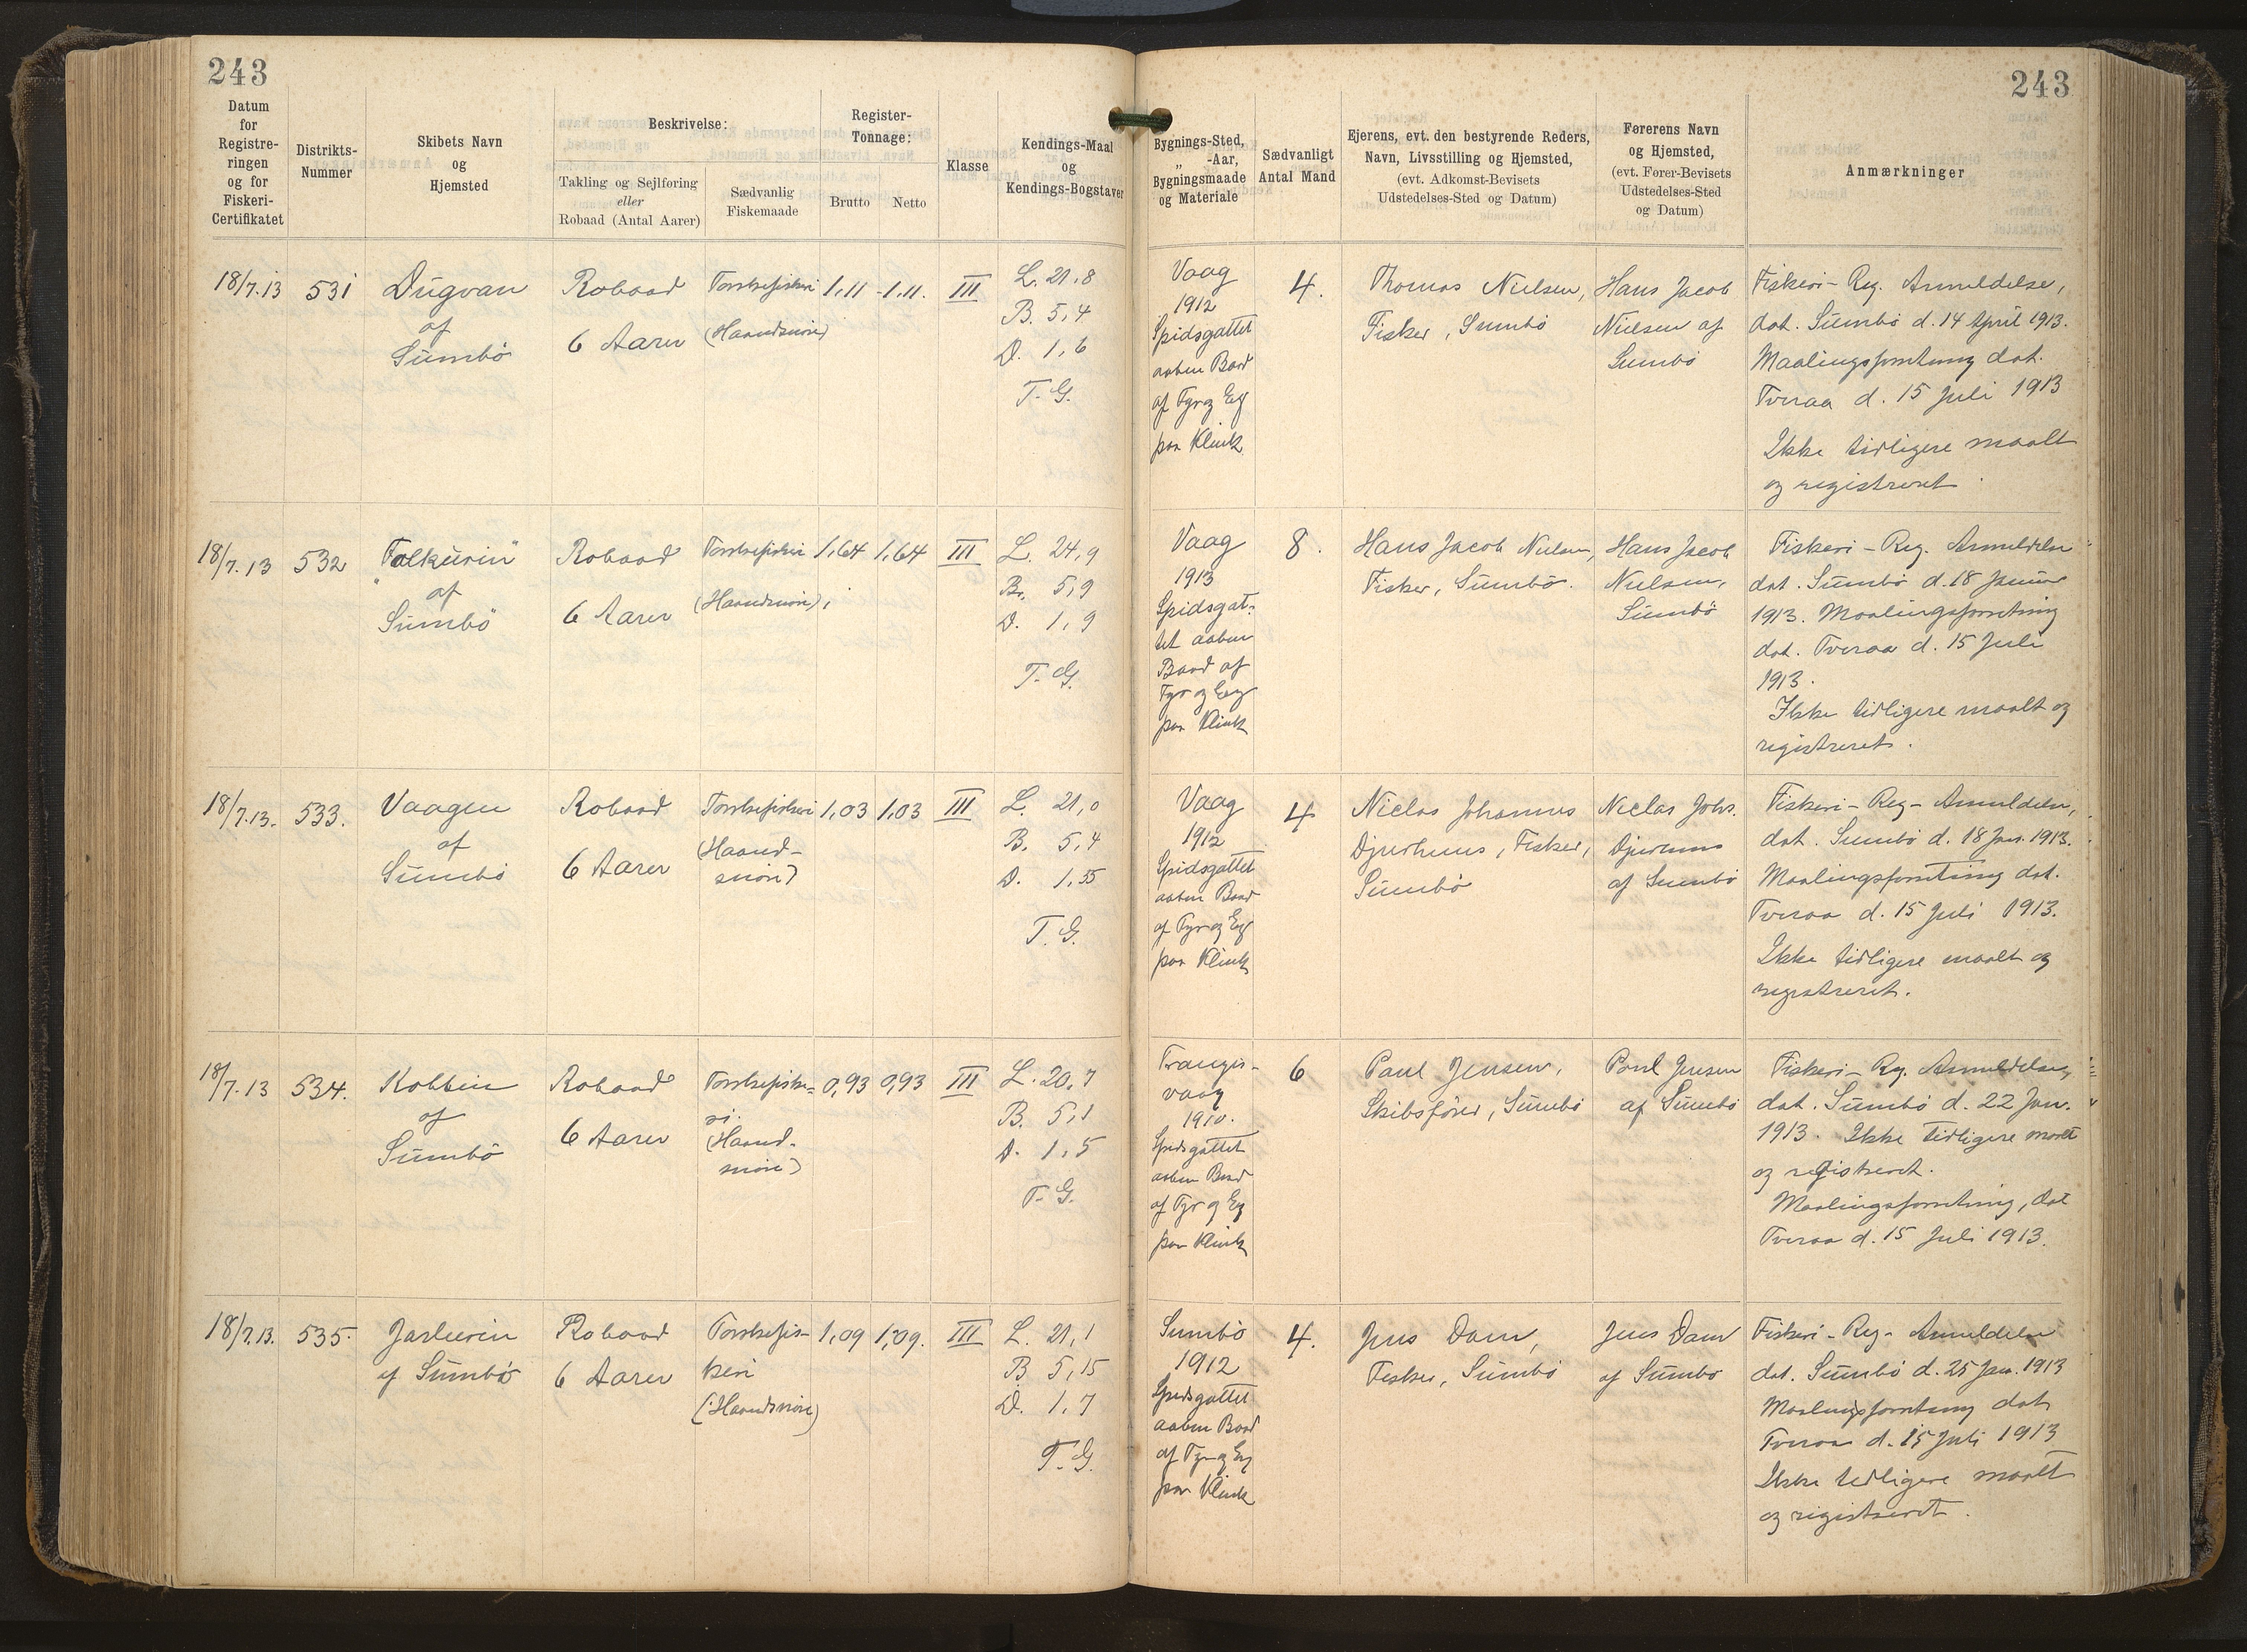 243
243
Datum
for
Registre-
ringen
og for
Fiskeri-
Certifikatet
Distrikts-
Nummer
Skibets Navn
og
Hjemsted
Beskrivelse:
Takling og Sejlføring
eller
Robaad (Antal Aarer)
Sædvanlig
Fiskemaade
Register-
Tonnage:
Brutto
Netto
Klasse
Kendings-Maal
og
Kendings-Bogstaver
Bygnings-Sted,
„ -Aar,
Bygningsmaade
og Materiale
Sædvanligt
Antal Mand
Ejerens, evt. den bestyrende Reders,
Navn, Livsstilling og Hjemsted,
(evt. Adkomst-Bevisets
Udstedelses-Sted og Datum)
Førerens Navn
og Hjemsted,
(evt. Fører-Bevisets
Udstedelses-Sted
og Datum)
Anmærkninger
18/7.13
531
Dugvan
af
Sumbö
Robaad
6 Aarer
Torskefiskeri
(Haandsnøre)
1,11
1,11.
III
L. 21,8
B. 5,4
D. 1,6
T.G.
Vaag
1912
Spidsgattet
aaben Baad
af Fyr og Eg
paa Klink
4.
Thomas Nielsen,
Fisker, Sumbö
Hans Jacob
Nielsen af
Sumbö
Fiskeri-Reg. Anmeldelse,
dat. Sumbö d. 14 April 1913.
Maalingsforretning dat.
Tveraa d. 15 Juli 1913
Ikke tidligere maalt
og registreret.
18/7.13
532
"Falkurin"
af
Sumbö
Robaad
6 Aarer
Torskefiskeri
(Haandsnøre)
1,64
1,64
III
L. 24,9
Br. 5,9
D. 1,9
T.G.
Vaag
1913
Spidsgat-
tet aaben
Baad af
Fyr og Eeg
paa Klink
8.
Hans Jacob Nielsen,
Fisker, Sumbö.
Hans Jacob
Nielsen,
Sumbö
Fiskeri-Reg. Anmeldelse
dat. Sumbö d. 18 Januar
1913. Maalingsforretning
dat. Tveraa d. 15 Juli
1913.
Ikke tidligere maalt og
registreret.
18/7.13.
533.
Vaagen
af
Sumbö
Robaad
6 Aarer
Torskefiskeri
(Haand-
snøre)
1,03
1,03
III
L. 21,0
B. 5,4
D. 1,55
T.G.
Vaag
1912
Spidsgattet
aaben Baad
af Fyr og Eg
paa Klink
4
Niclas Johannes
Djurhuus, Fisker,
Sumbö
Niclas Johs.
Djurhuus
af Sumbö
Fiskeri-Reg-Anmeldelse,
dat. Sumbö d. 18 Jan. 1913.
Maalingsforretning dat.
Tveraa d. 15 Juli 1913.
Ikke tidligere maalt og
registreret.
18/7.13
534.
Kobbin
af
Sumbö
Robaad
6 Aarer
Torskefiske-
ri
(Haand-
snøre)
0,93
0,93
III
L. 20,7
B. 5,1
D. 1,5
T.G.
Trangis-
vaag
1910.
Spidsgattet
aaben Baad
af Fyr og Eg
paa Klink
6
Paul Jensen,
Skibsfører, Sumbö
Poul Jensen
af Sumbö
Fiskeri-Reg. Anmeldelse,
dat. Sumbö d. 22 Jan.
1913. Ikke tidligere maalt
og registreret.
Maalingsforretning, dat
Tveraa d. 15 Juli 1913.
18/7.13.
535.
Jarlurin
af Sumbö
Robaad
6 Aarer
Torskefis-
keri
(Haandsnøre)
1,09
1,09.
III
L. 21,1
B 5,15
D. 1,7
T.G.
Sumbö
1912
Spidsgattet
aaben Baad
af Fyr og Eg
paa Klink
4.
Jens Dam,
Fisker, Sumbö
Jens Dam
af Sumbö
Fiskeri-Reg-Anmeldelse
dat. Sumbö d. 25 Jan. 1913
Maalingsforretning dat
Tveraa d. 15 Juli 1913
Ikke tidligere maalt
og registreret.